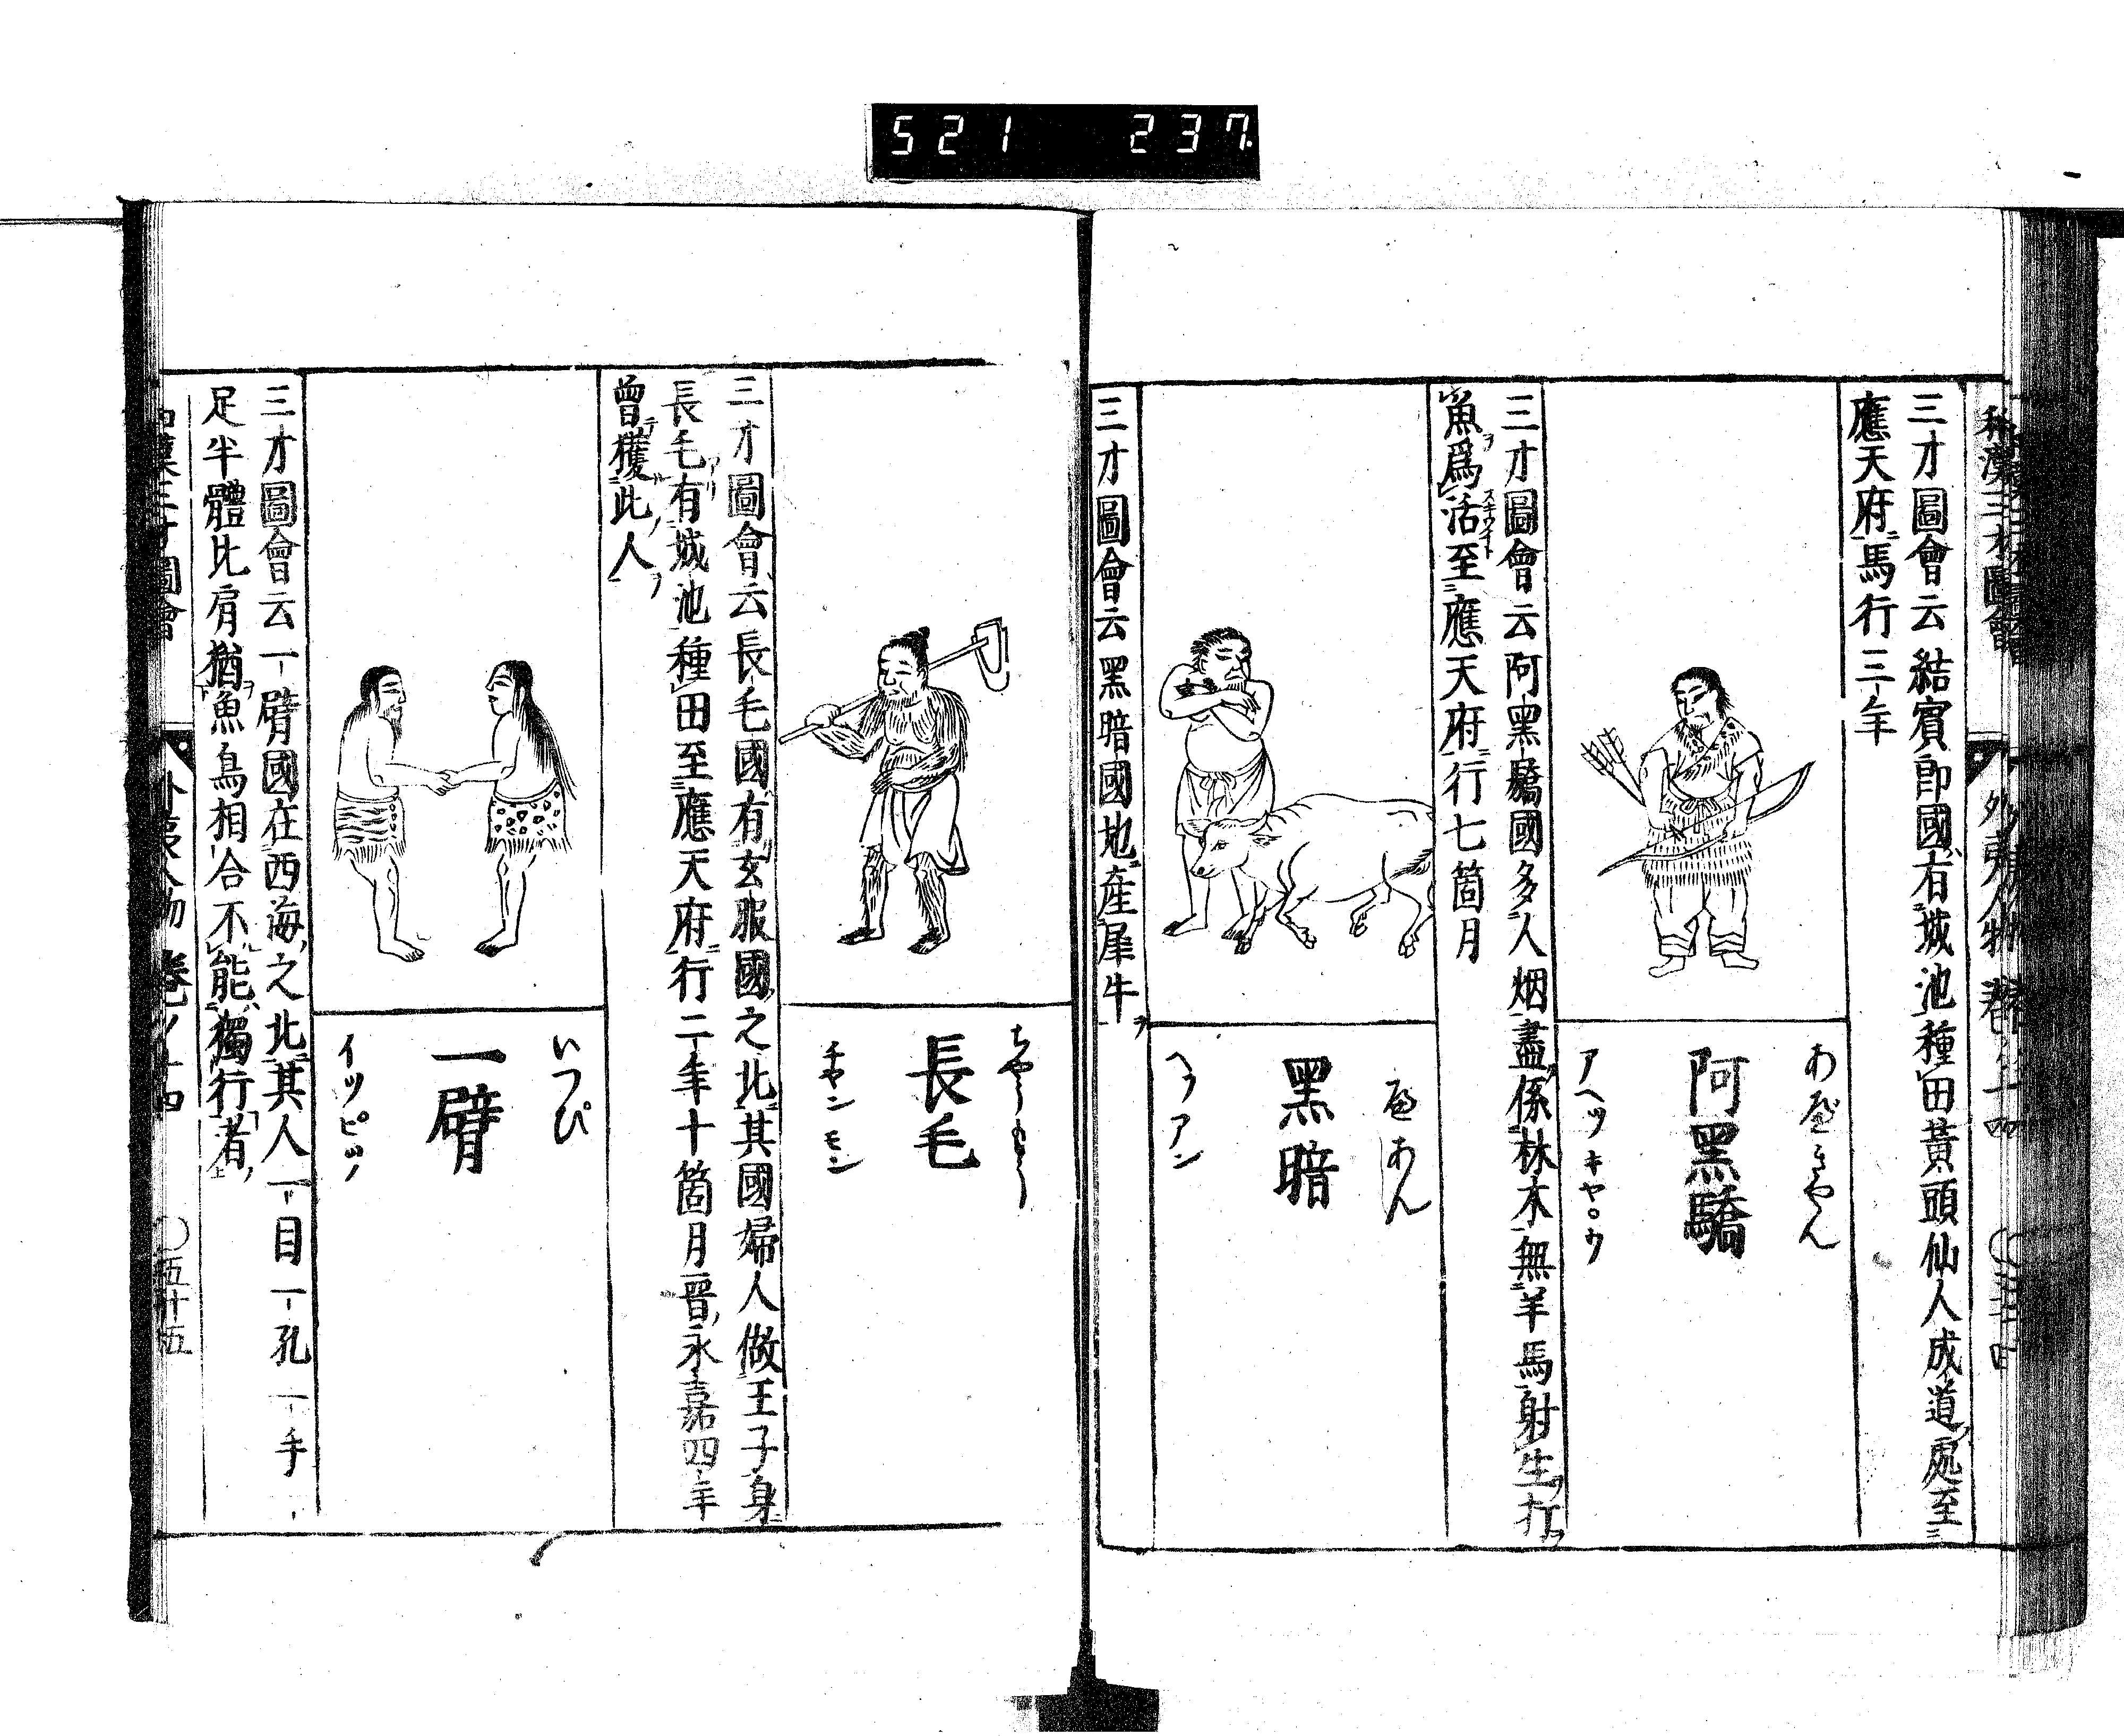 521 237
和漢三才圖會 外夷人物 卷ノ十四
三才圖會云結賓郎國有城池種田黃頭仙人成道處至
應天府馬行三年
阿黑驕
アヘツキヤ。ウ
三才圖會云阿黑驕國多人烟盡係林木無羊馬射生打
魚爲活至應天府行七箇月
黑暗
ヘツアン
三才圖會云黑暗國地產犀牛
ちやうもう
長毛
チヤンモン
三才圖會云長毛國有玄服國之北其國婦人做王子身
長毛有城池種田至應天府行二年十箇月晉永嘉四年
曾獲此人
いつぴ
一臂
イツピツ
三才圖會云一臂國在西海之北其人一目一孔一手一
足半體比肩猶魚鳥相合不能獨行者
和漢三才圖會 外夷人物 卷ノ十四 〇五十五